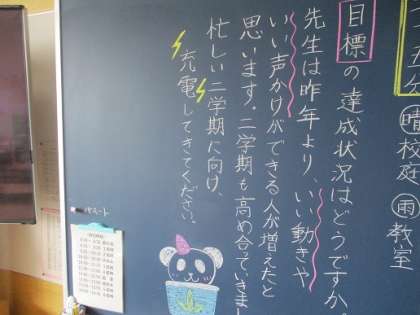 五分 晴校庭 雨教室
目標の達成状況はどうですか。
先生は昨年より、いい動きや
いい声かけができる人が増えたと
思います。二学期も高め合っていきまし
忙しい二学期に向け、
充電してきてください。